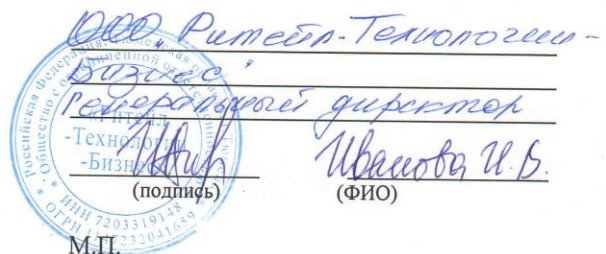 ООО Ритейл-Технологии-
Бизнес"
Генеральный директор
Иванова И.В.
(подпись) (ФИО)
Российская Федерация
Общество с ограниченной ответственностью
Ритейл
-Технологии
-Бизнес
ИНН 7203319148
ОГРН
М.П.